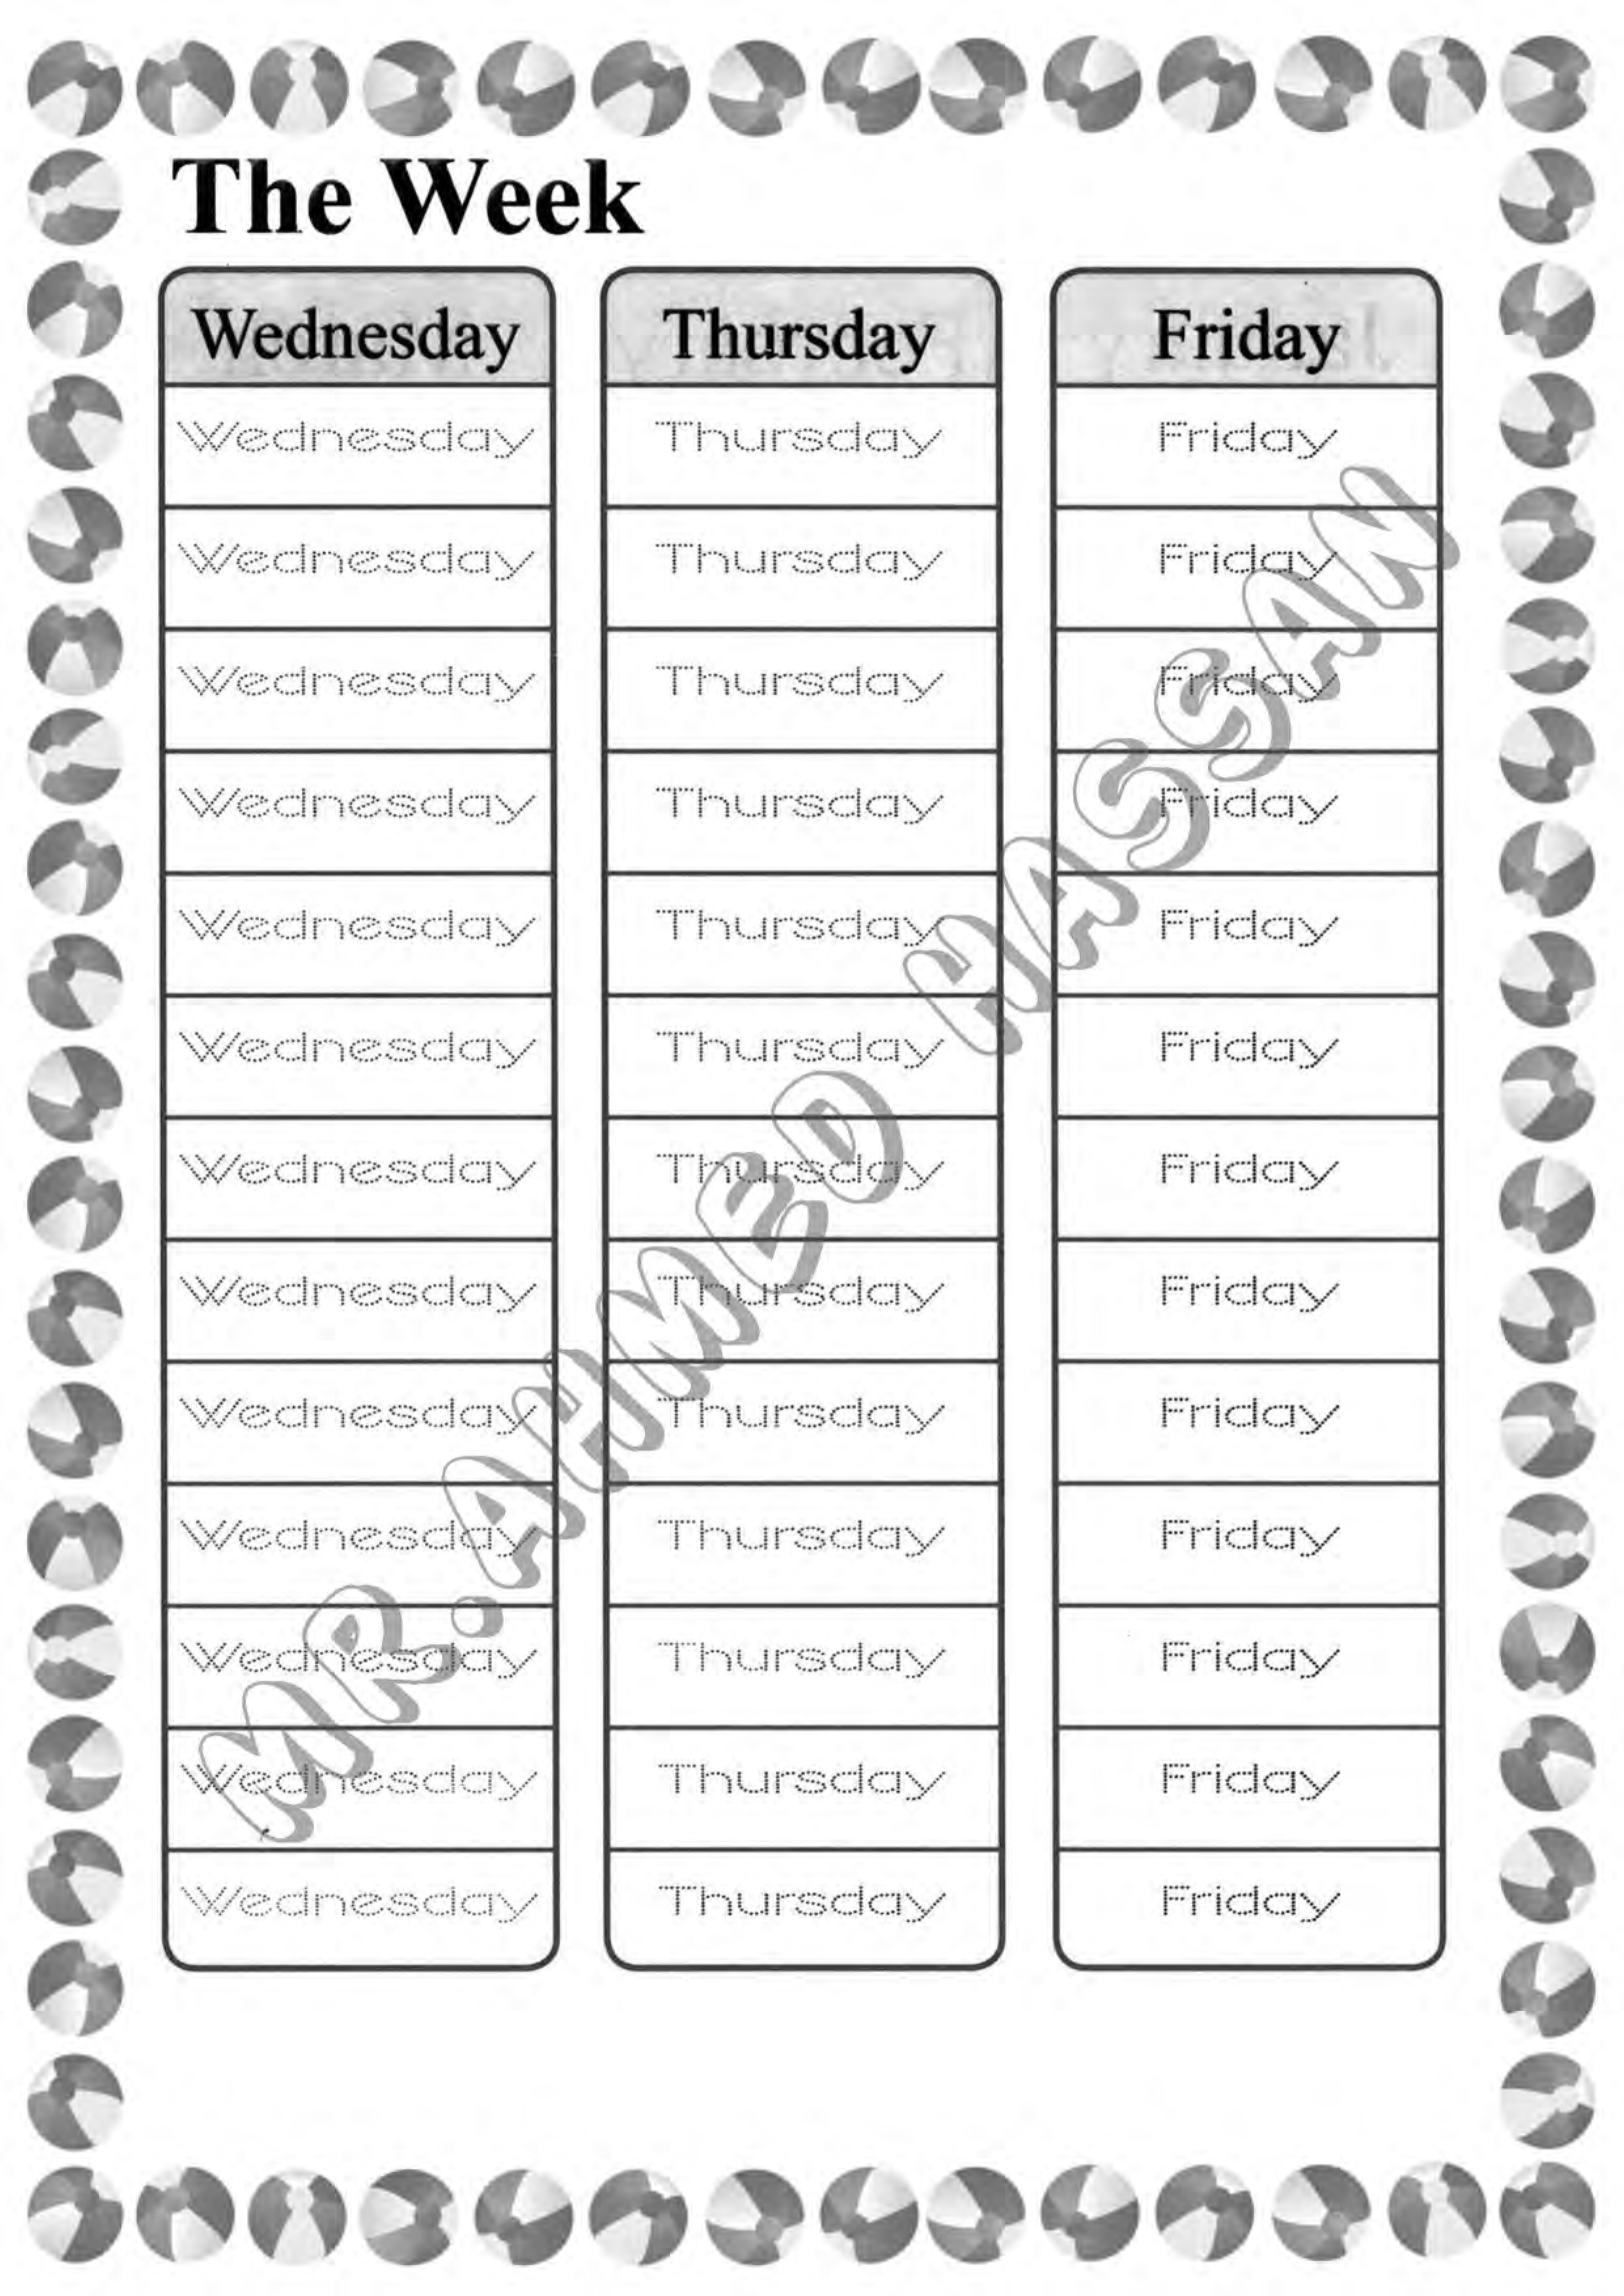 The Week
Wednesday Thursday Friday
Wednesday Thursday Friday
Wednesday Thursday Friday
Wednesday Thursday Friday
Wednesday Thursday Friday
Wednesday Thursday Friday
Wednesday Thursday Friday
Wednesday Thursday Friday
Wednesday Thursday Friday
Wednesday Thursday Friday
Wednesday Thursday Friday
Wednesday Thursday Friday
Wednesday Thursday Friday
Wednesday Thursday Friday
MR.AHMED HASSAN